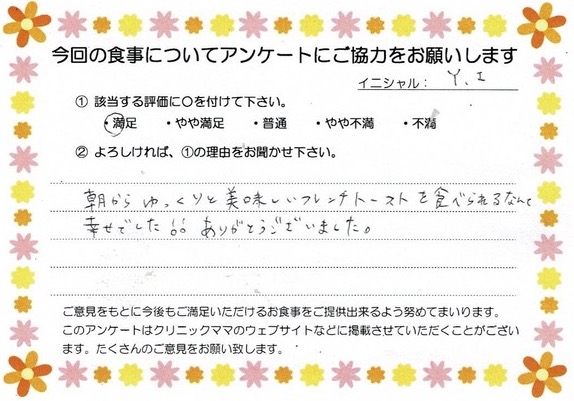 今回の食事についてアンケートにご協力をお願いします
イニシャル： Y.I
① 該当する評価に○を付けて下さい。
・満足 ・やや満足 ・普通 ・やや不満 ・不満
② よろしければ、①の理由をお聞かせ下さい。
朝からゆっくりと美味しいフレンチトーストを食べられるなんて
幸せでした ありがとうございました。
ご意見をもとに今後もご満足いただけるお食事をご提供出来るよう努めてまいります。
このアンケートはクリニックママのウェブサイトなどに掲載させていただくことがござい
ます。たくさんのご意見をお願い致します。